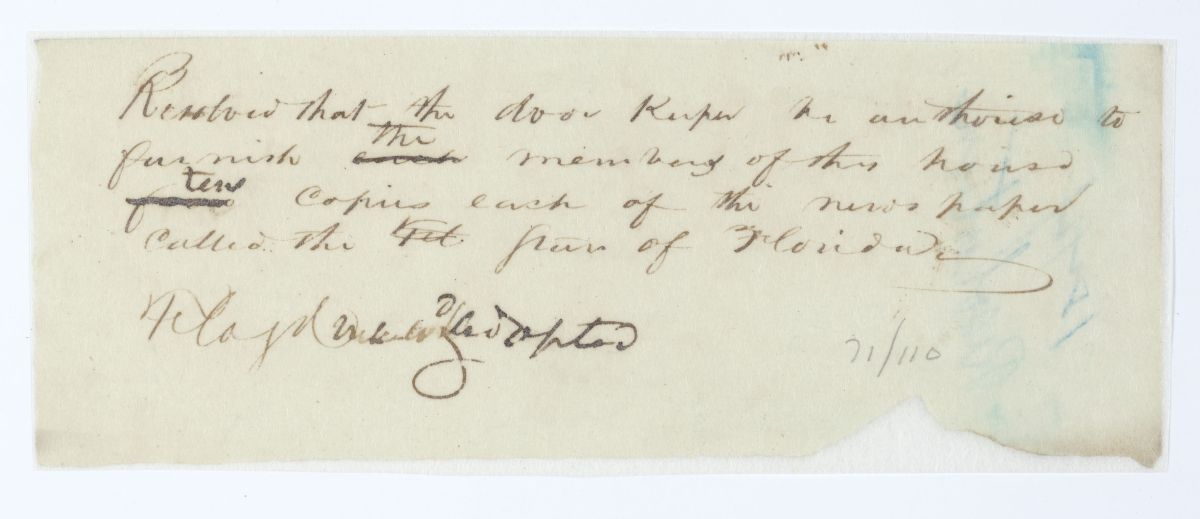 Resolved that the door Keeper be authorise to
furnish the each members of this house
ten copies each of the news paper
called the Tel Star of Florida
Floyd adopted
21/110